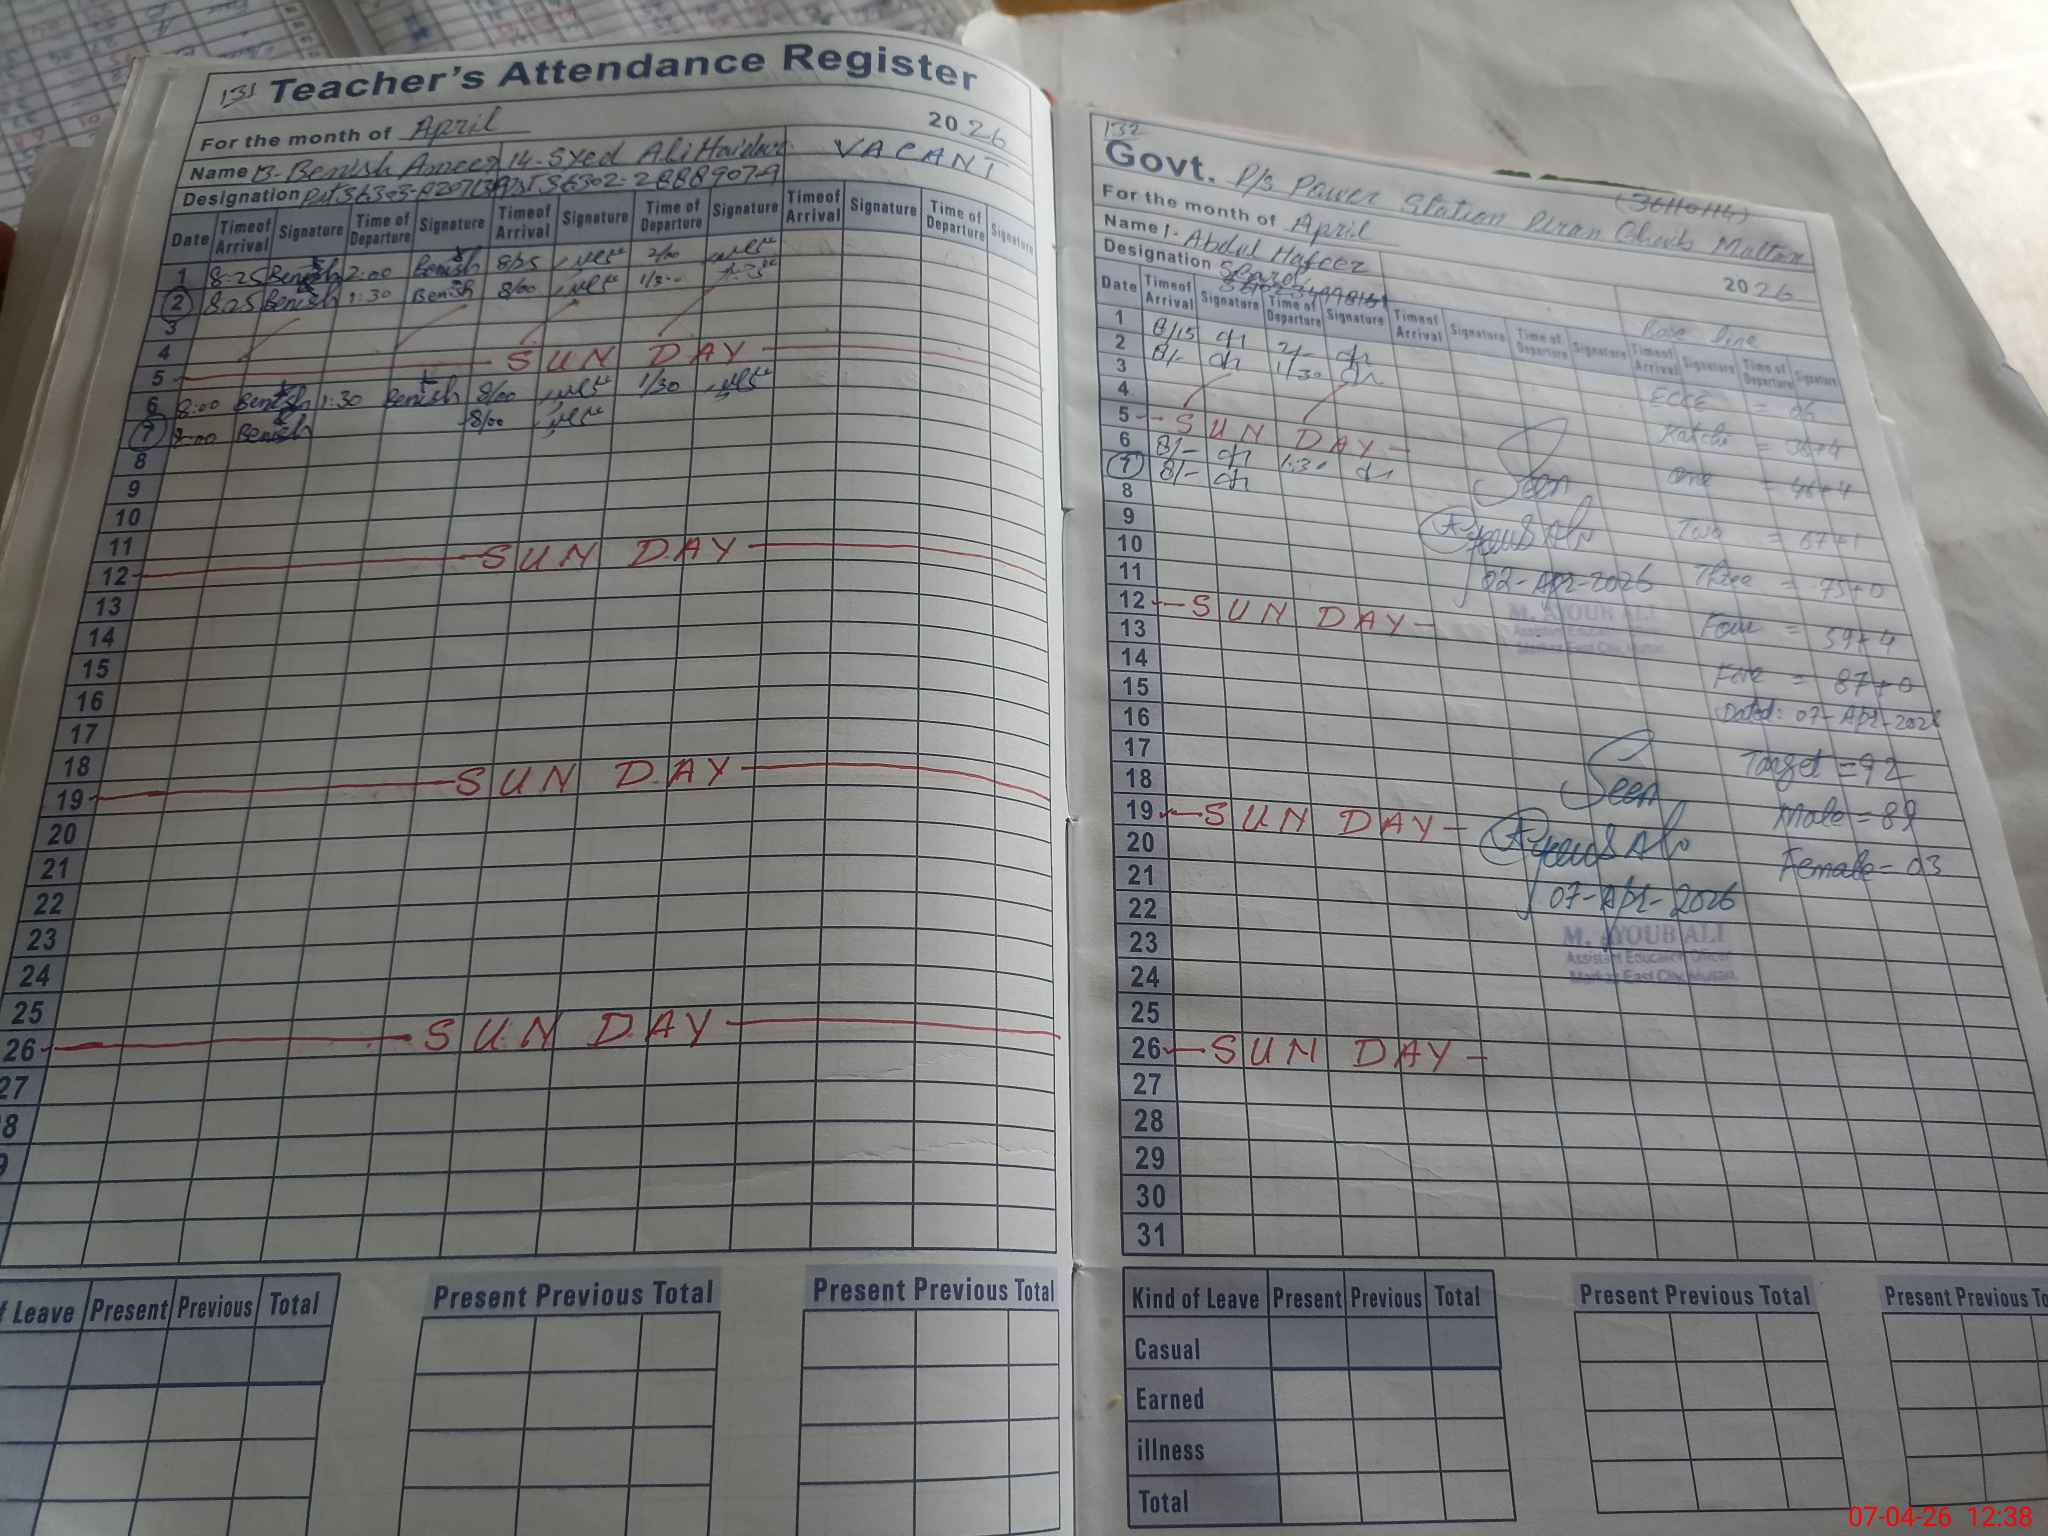 131 Teacher's Attendance Register
For the month of April 2026
Name 13- Benish Ameer 14- Syed Ali Haider VACANT
Designation PST
Date Timeof Arrival Signature Time of Departure Signature Timeof Arrival Signature Time of Departure Signature Timeof Arrival Signature Time of Departure Signature
1 8:25 Benish 2:00 Benish 8/25 2/00
2 8:25 Benish 1:30 Benish 8/00 1/30
3
4
5 SUN DAY
6 8:00 Benish 1:30 Benish 8/00 1/30
7 8:00 Benish 8/00
8
9
10
11
12 SUN DAY
13
14
15
16
17
18
19 SUN DAY
20
21
22
23
24
25
26 SUN DAY
27
8
9
f Leave Present Previous Total
Present Previous Total
Present Previous Total
132
Govt. P/s Power Station Peran Gheib Multan
For the month of April 2026
Name 1- Abdul Hafeez
Designation
Date Timeof Arrival Signature Time of Departure Signature Timeof Arrival Signature Time of Departure Signature Timeof Arrival Signature Time of Departure Signature
1 8/15 2/-
2 8/- 1/30
3
4
5 SUN DAY
6 8/- 1:30
7 8/-
8
9
10
11
12 SUN DAY
13
14
15
16
17
18
19 SUN DAY
20
21
22
23
24
25
26 SUN DAY
27
28
29
30
31
Seen
02-Apr-2026
M. AYOUB ALI
Assistant Education Officer
Markaz East City, Multan
Base line
ECCE = 06
Katchi = 38+4
One = 46+4
Two = 67+1
Three = 75+0
Four = 59+4
Five = 87+0
Dated: 07-Apr-2026
Target = 92
Male = 89
Female = 03
Seen
07-Apr-2026
M. AYOUB ALI
Assistant Education Officer
Markaz East City, Multan
Kind of Leave Present Previous Total
Casual
Earned
illness
Total
Present Previous Total
Present Previous To
07-04-26 12:38